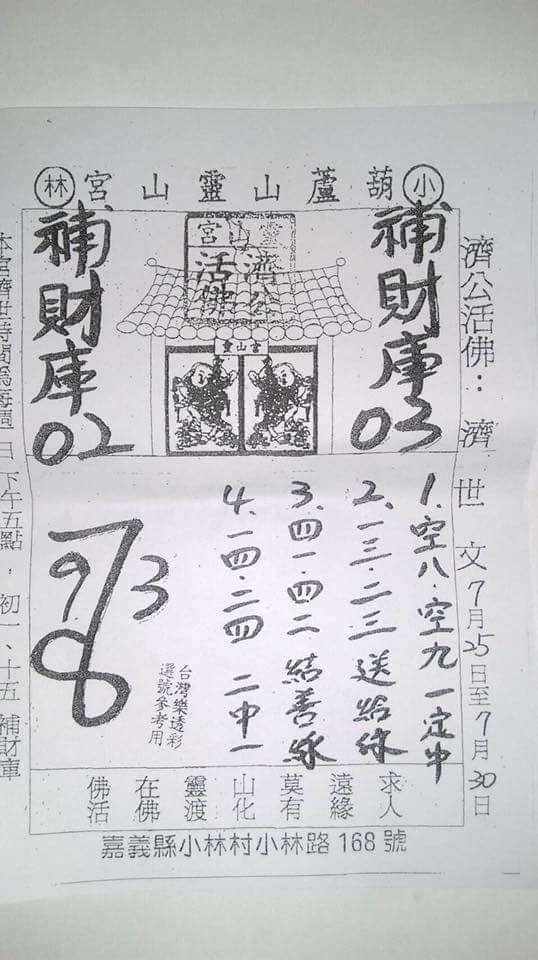 小 葫蘆山靈山宮 林
濟公活佛：濟世文7月25日至7月30日
補財庫03
靈山宮
濟公
活佛
靈山宮
補財庫02
1、空八、空九 一定中
2、一三、二三 送給你
3、四一、四二 結善緣
4、一四、二四 二中一
台灣樂透彩
選號參考用
973
8
佛在靈山莫遠求
活佛渡化有緣人
嘉義縣小林村小林路168號
本宮濟世時間為每週日下午五點，初一、十五 補財庫